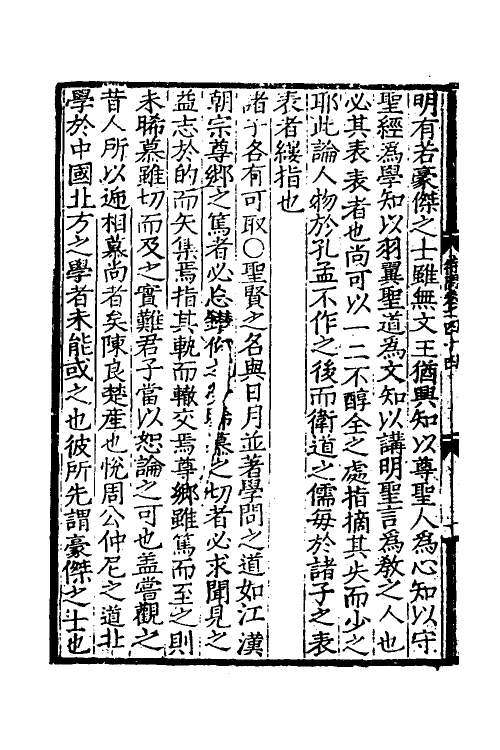 明有若豪傑之士雖無文王猶興知以尊聖人為心知以守
聖經為學知以羽翼聖道為文知以講明聖言為教之人也
必其表表者也尚可以一二不醇全之處指摘其失而少之
耶此論人物於孔孟不作之後而衛道之儒每於諸子之表
表者縷指也
諸子各有可取○聖賢之名與日月並著學問之道如江漢
朝宗尊鄉之篤者必
慕之切者必求聞見之
益志於的而矢集焉指其軌而轍交焉尊鄉雖篤而至之則
未晞慕雖切而及之實難君子當以恕論之可也盖嘗觀之
昔人所以逓相慕尚者矣陳良楚産也恱周公仲尼之道北
學於中國北方之學者未能或之也彼所先謂豪傑之士也